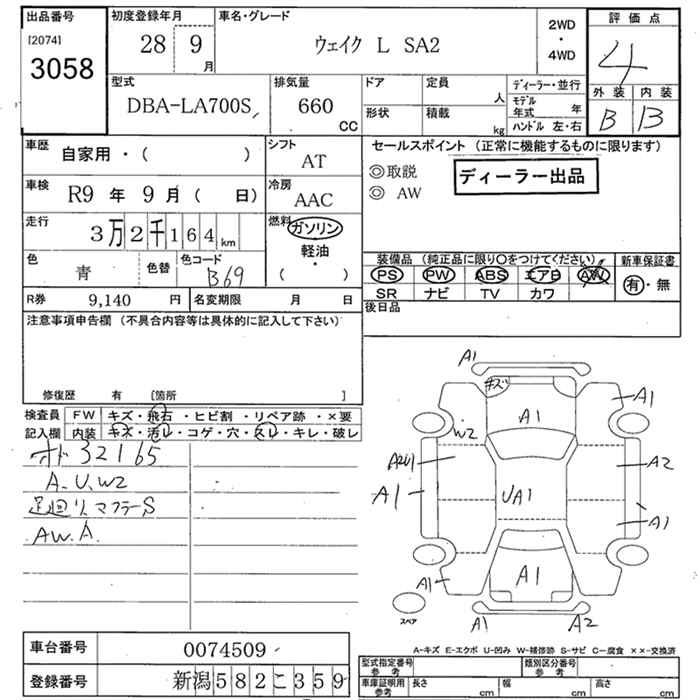 出品番号
[2074]
3058
初度登録年月
28 9
月
車名・グレード
ウェイク L SA2
2WD
・
4WD
評価点
4
外装 内装
B B
型式
DBA-LA700S
排気量
660
CC
ドア
形状
定員
人
積載
kg
ディーラー・並行
モデル
年式 年
ハンドル 左・右
車歴
自家用・( )
シフト
AT
車検
R9 年 9 月 ( 日)
冷房
AAC
走行
3万2千164km
燃料
ガソリン
軽油・
( )
色
青
色替
色コード
B69
R券 9,140 円
名変期限 月 日
セールスポイント (正常に機能するものに限ります)
◎取説
◎ AW
ディーラー出品
装備品 (純正品に限り○をつけてください)
PS PW ABS エアB AW
SR ナビ TV カワ
新車保証書
有・無
後日品
注意事項申告欄 (不具合内容等は具体的に記入して下さい)
修復歴 有 [箇所 ]
検査員
記入欄
FW キズ・飛石・ヒビ割・リペア跡・×要
内装 キズ・汚レ・コゲ・穴・スレ・キレ・破レ
オド 32165
A.U.W2
足回リ マフラーS
AW.A
A1
キズ
A1
A1
W2
A2U1
A2
A1
UA1
A1
A1
A1
A1
A2
スペア
A-キズ E-エクボ U-凹み W-補修跡 S-サビ C-腐食 ××-交換済
車台番号 0074509
登録番号 新潟582こ359
型式指定番号
参考
類別区分番号
参考
車庫証明用
参考
長さ cm
幅 cm
高さ cm